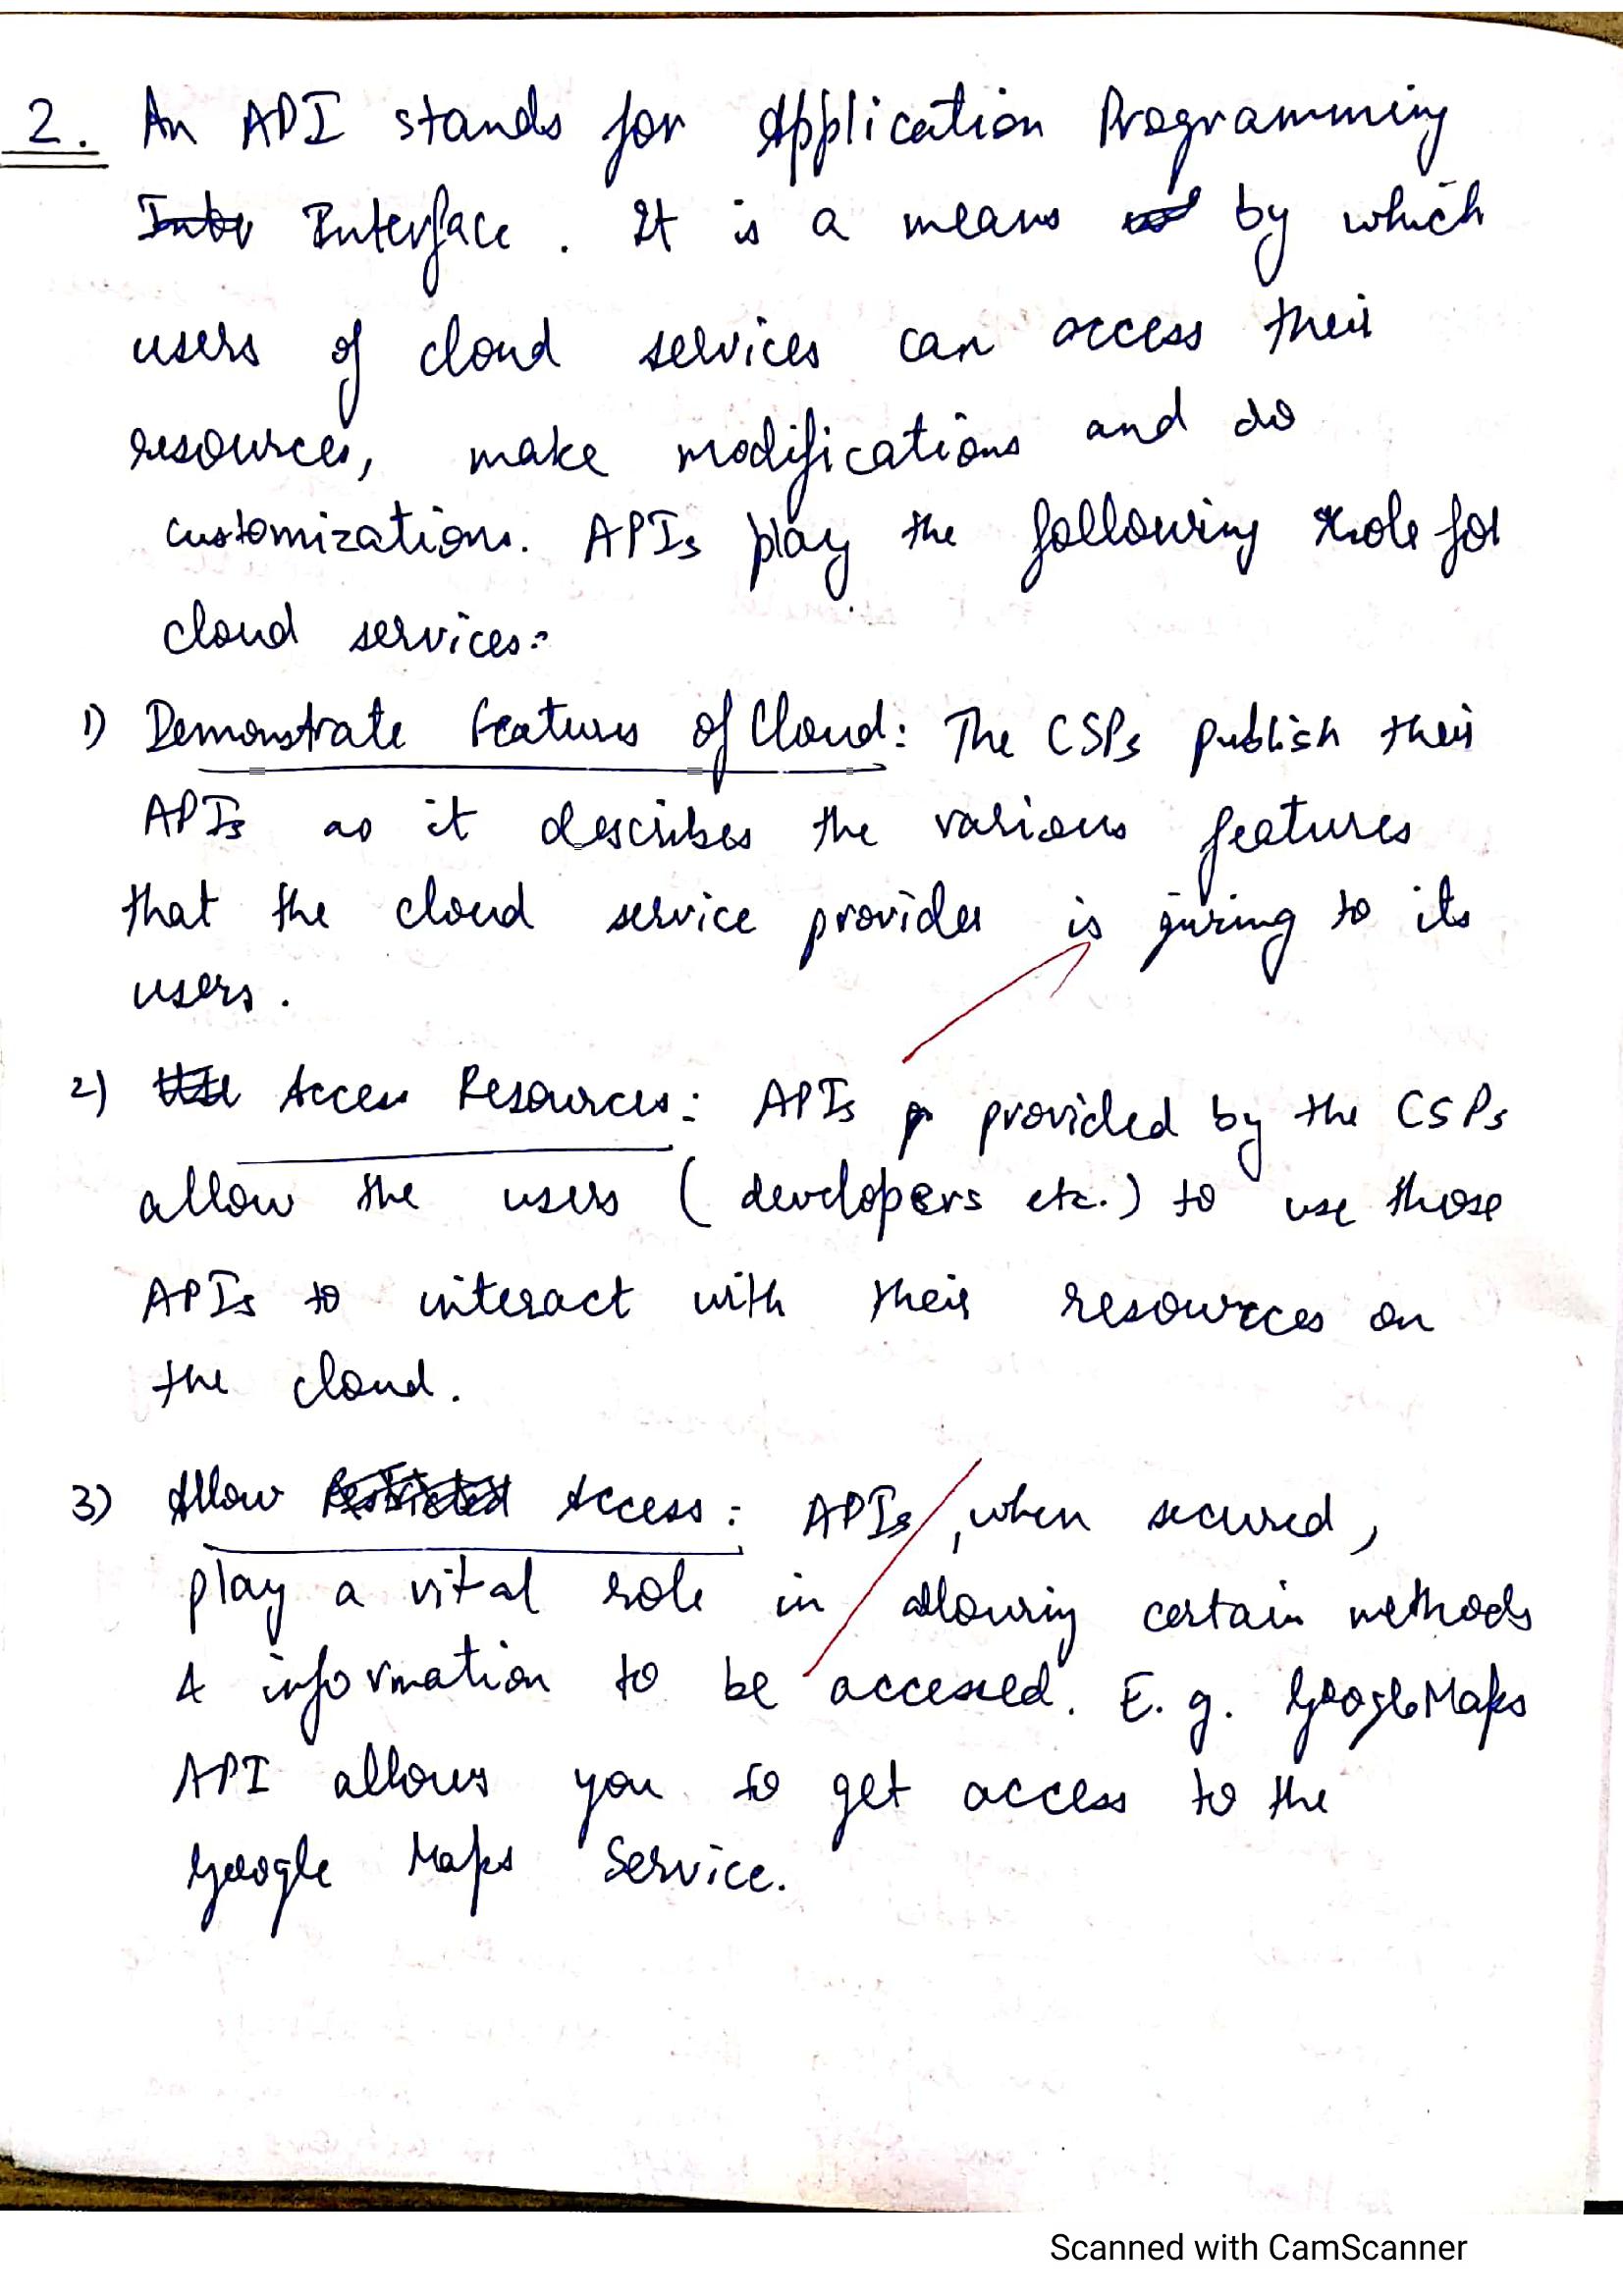 2. An API stands for Application Programming
Inter Interface. It is a means by which
users of cloud services can access their
resources, make modifications and do
customizations. APIs play the following role for
cloud services:
1) Demonstrate Features of Cloud: The CSPs publish their
APIs as it describes the various features
that the cloud service provider is giving to its
users.
2) Access Resources: APIs p provided by the CSPs
allow the users (developers etc.) to use those
APIs to interact with their resources on
the cloud.
3) Allow Restricted Access: APIs, when secured,
play a vital role in allowing certain methods
& information to be accessed. E.g. Google Maps
API allows you to get access to the
Google Maps Service.
Scanned with CamScanner